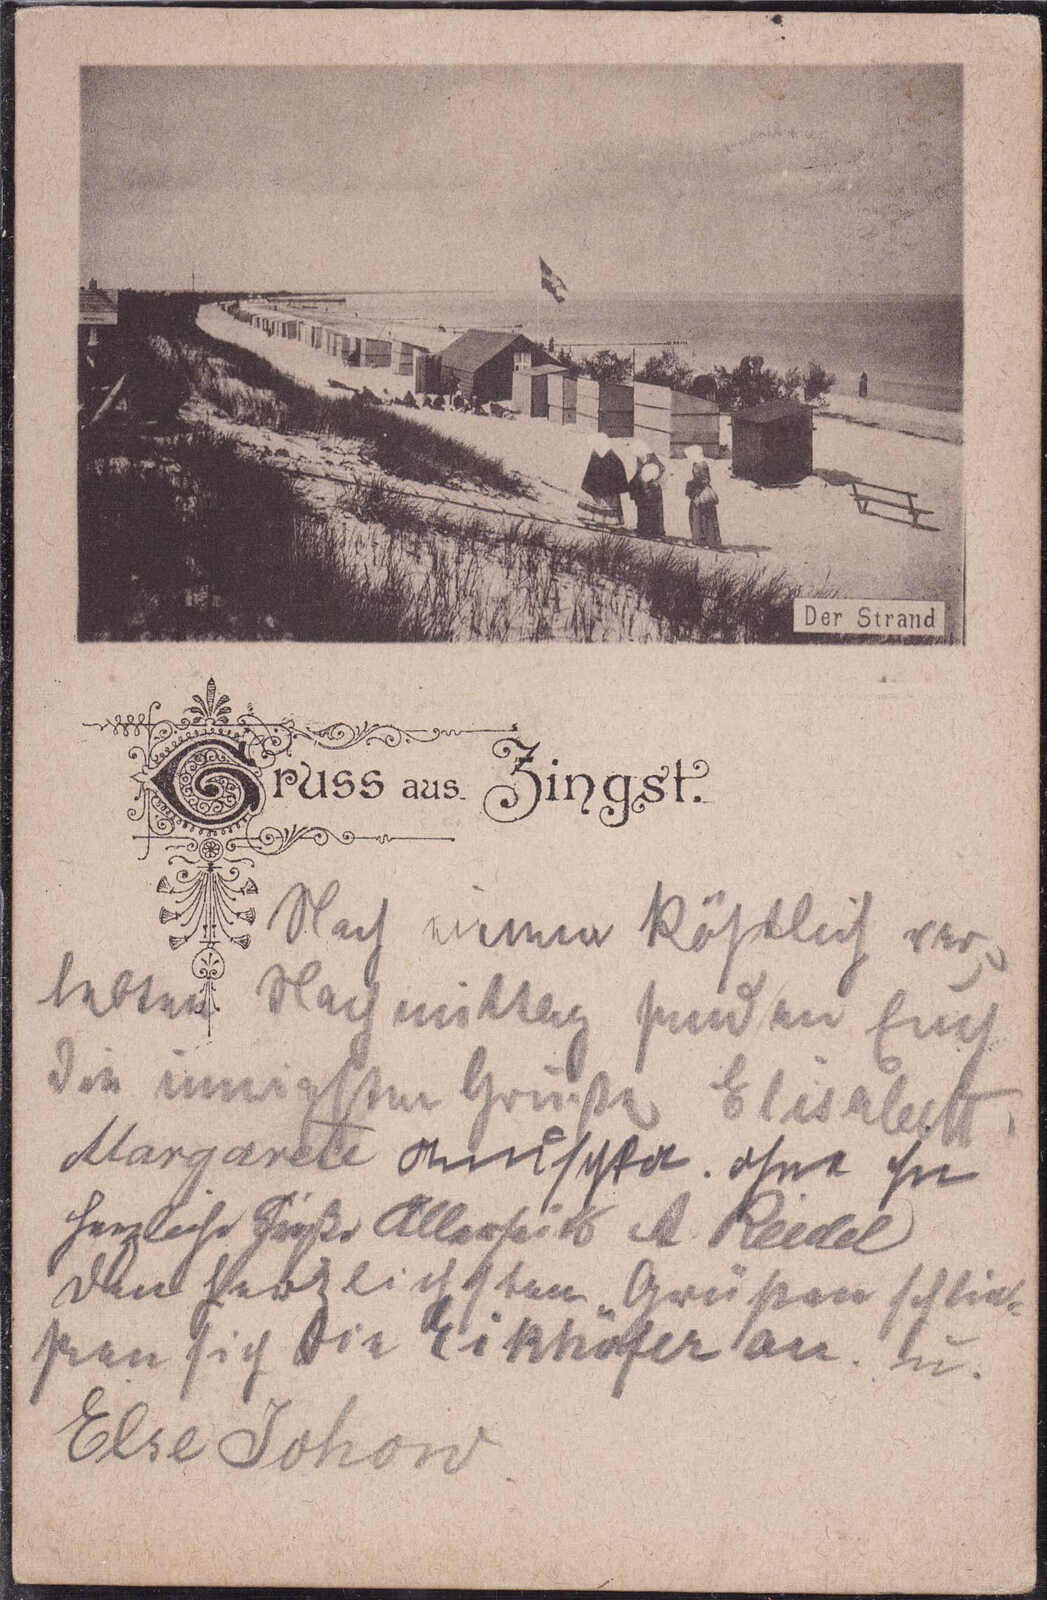 Der Strand
Gruss aus Zingst.
Nach einem köstlich ver-
lebten Nachmittag senden Euch
die innigsten Grüße Elisabeth,
Margarete
herzliche Grüße Allerseits A Riedel
Den herzlichsten Grüßen schlie-
ßen sich die Eikhöfer an. u.
Else Johow